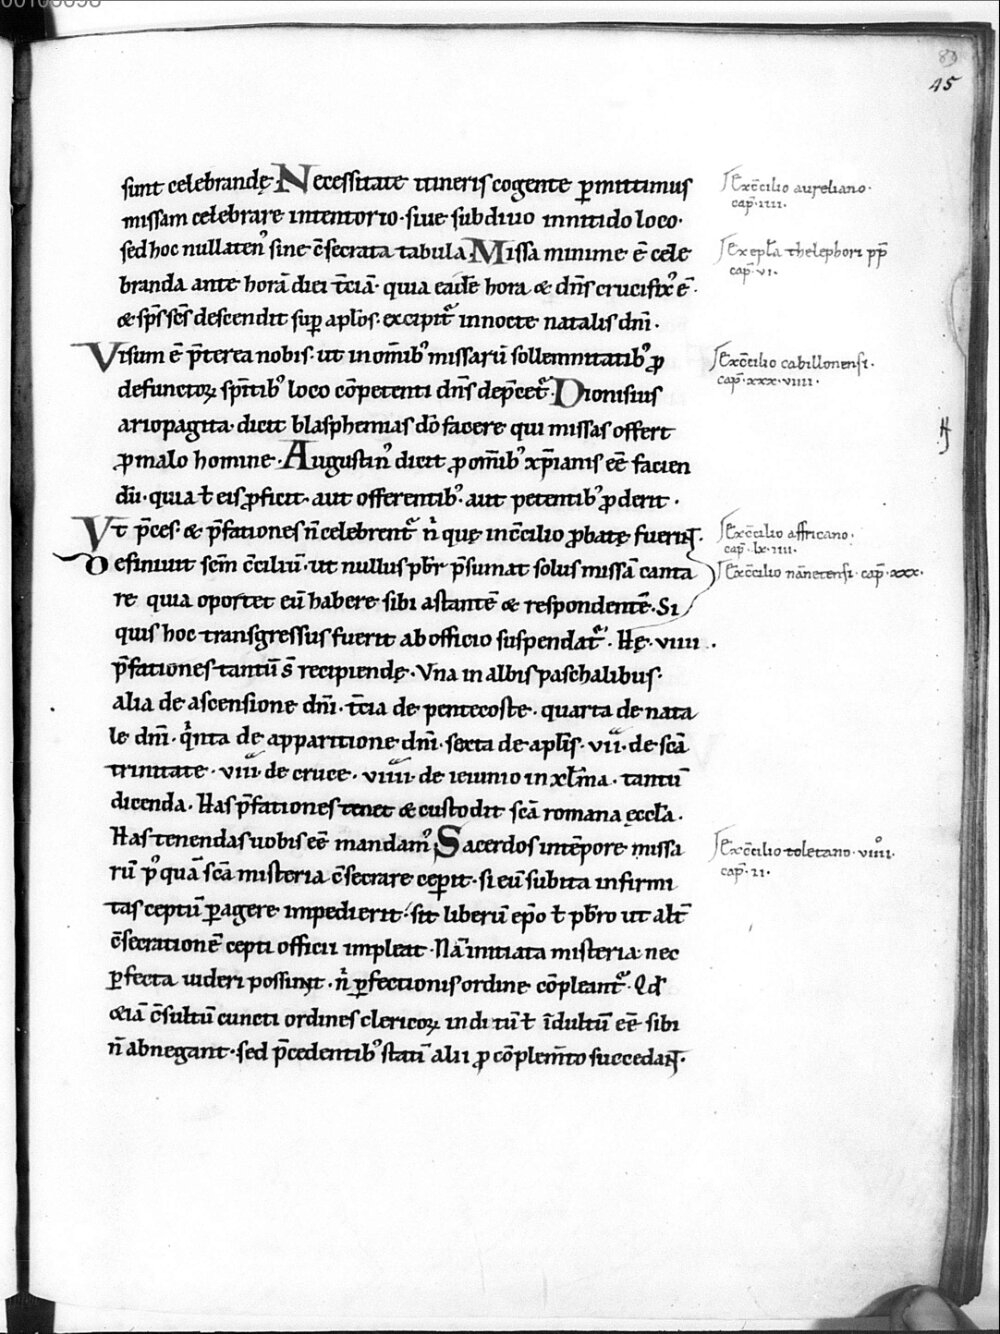 00100098
83
45
sunt celebrandę. Necessitate itineris cogente p̱mittimus
missam celebrare intentorio· siue subdiuo innitido loco·
sed hoc nullaten᾽ sine c̄secrata tabula. Missa minime ē cele
branda ante horā diei t̄ciā· quia eadē hora & dn̄s crucifix᾽ ē·
& sp̄s sc̄s descendit sup̱ aplōs· excipit᷑ innocte natalis dn̄i·
Visum ē p̄terea nobis· ut in om̄ib᾽ missarū sollemnitatib᾽ ꝓ
defunctoꝝ sp̄itib᾽ loco cōpetenti dn̄s dep̄cet᷑· Dionisius
ariopagita· dicit blasphemias dō facere qui missas offert
ꝓ malo homine· Augustin᾽ dicit ꝓ om̄ib᾽ xp̄ianis eē facien
dū· quia ƚ eis ꝓficit· aut offerentib᾽· aut petentib᾽ ꝓderit·
Vt p̄ces· & p̄fationes n̄ celebrent᷑ nͥ quę inc̄cilio ꝓbatę fuerint·
Definiuit sc̄m c̄ciliū· ut nullus p̄br p̄sumat solus missā canta
re quia oportet eū habere sibi astantē & respondentē· Si
quis hoc transgressus fuerit ab officio suspendat᷑· Hę· viiii·
p̄fationes tantū s̄ recipiendę· Vna in albis paschalibus·
alia de ascensione dn̄i· t̄cia de pentecoste· quarta de nata
le dn̄i· qͥnta de apparitione dn̄i· sexta de apl̄is· vii· de sc̄a
trinitate· viii· de cruce· viiii· de ieiunio in xl̄ma· tantū
dicenda· Has p̄fationes tenet & custodit sc̄a romana ęccl̄a·
Has tenendas uobis eē mandam᾽ Sacerdos intēpore missa
rū p᾽quā sc̄a misteria c̄secrare cep̱it· si eū subita infirmi
tas ceptū p̱agere impedierit· sit liberū ep̄o ƚ pb̄ro ut alt̄
c̄secrationē cepti officii impleat· Nā initiata misteria nec
p̱fecta uideri possunt· nͥ p̱fectionis ordine cōpleant᷑· Qd̄
&iā c̄sultū cuncti ordines clericoꝝ indi tū ƚ īdultū eē sibi
n̄ abnegant· sed p̄cedentib᾽ statī alii ꝓ cōplem̄to succedant·
Exc̄cilio aureliano·
cap̄· iiii·
Ex epl̄a thelephori pp̄
cap̄· vi·
Exc̄cilio cabillonensi·
cap̄· xxx·viiii·
Exc̄cilio affricano·
cap̄· lx·iiii·
Exc̄cilio nānetensi· cap̄· xxx·
Exc̄cilio toletano· viiͦii·
cap̄· ii·